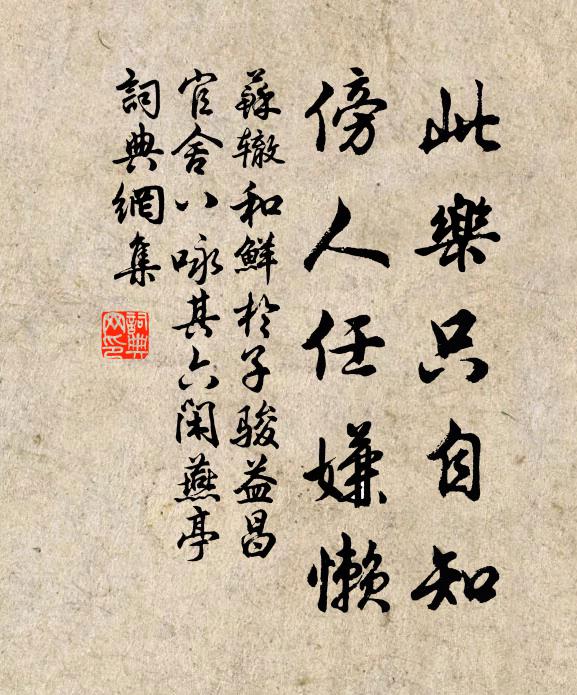 此樂只自知
傍人任嫌懒
蘇辙和鮮於子駿益昌
官舍八咏其六閑燕亭
詞典網集
詞典
网印